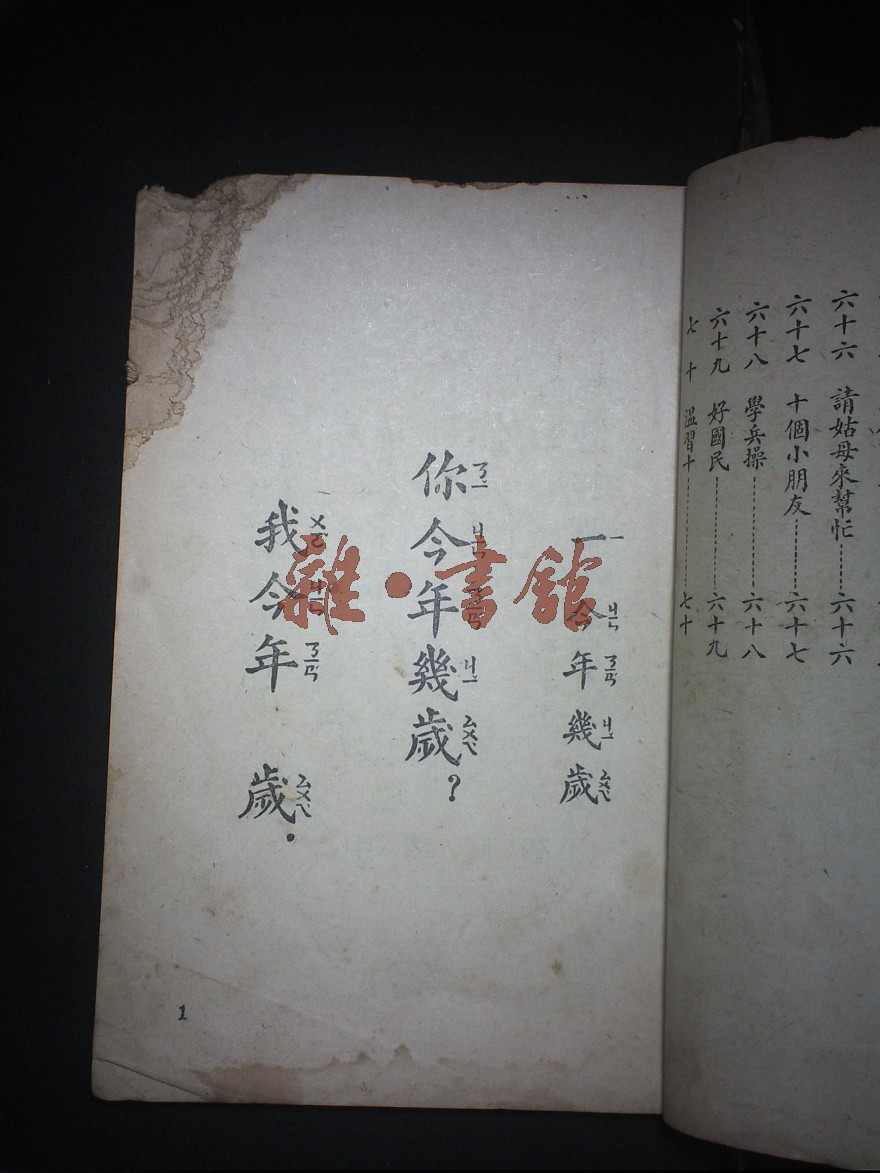 六十六　請姑母來幫忙……六十六
六十七　十個小朋友……六十七
六十八　學兵操……六十八
六十九　好國民……六十九
七十　溫習十……七十
一　今年幾歲
ㄧ　ㄐㄧㄣ　ㄋㄧㄢ　ㄐㄧ　ㄙㄨㄟ
你今年幾歲？
ㄋㄧ　ㄐㄧㄣ　ㄋㄧㄢ　ㄐㄧ　ㄙㄨㄟ
我今年　歲．
ㄨㄛ　ㄐㄧㄣ　ㄋㄧㄢ　ㄙㄨㄟ
1
雜·書館